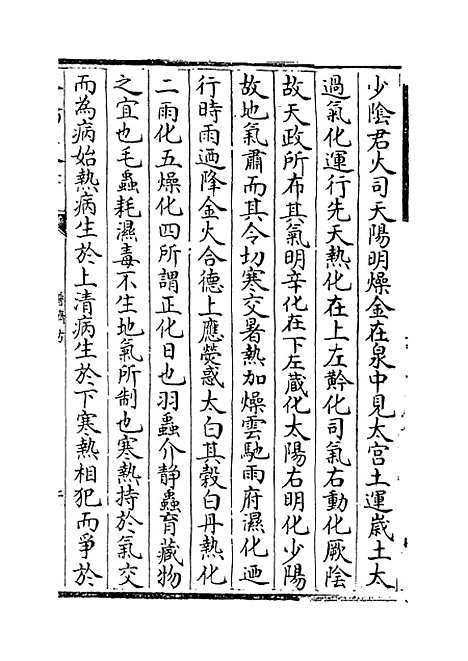 少陰君火司天陽明燥金在泉中見太宮土運歲土太
過氣化運行先天熱化在上左黅化司氣右動化厥陰
故天政所布其氣明辛化在下左蔵化太陽右明化少陽
故地氣肅而其令切寒交暑熱加燥雲馳雨府濕化迺
行時雨迺降金火合德上應熒惑太白其榖白丹熱化
二雨化五燥化四所謂正化日也羽蟲介静蟲育藏物
之宜也毛蟲耗濕毒不生地氣所制也寒熱持於氣交
而為病始熱病生於上清病生於下寒熱相犯而爭於